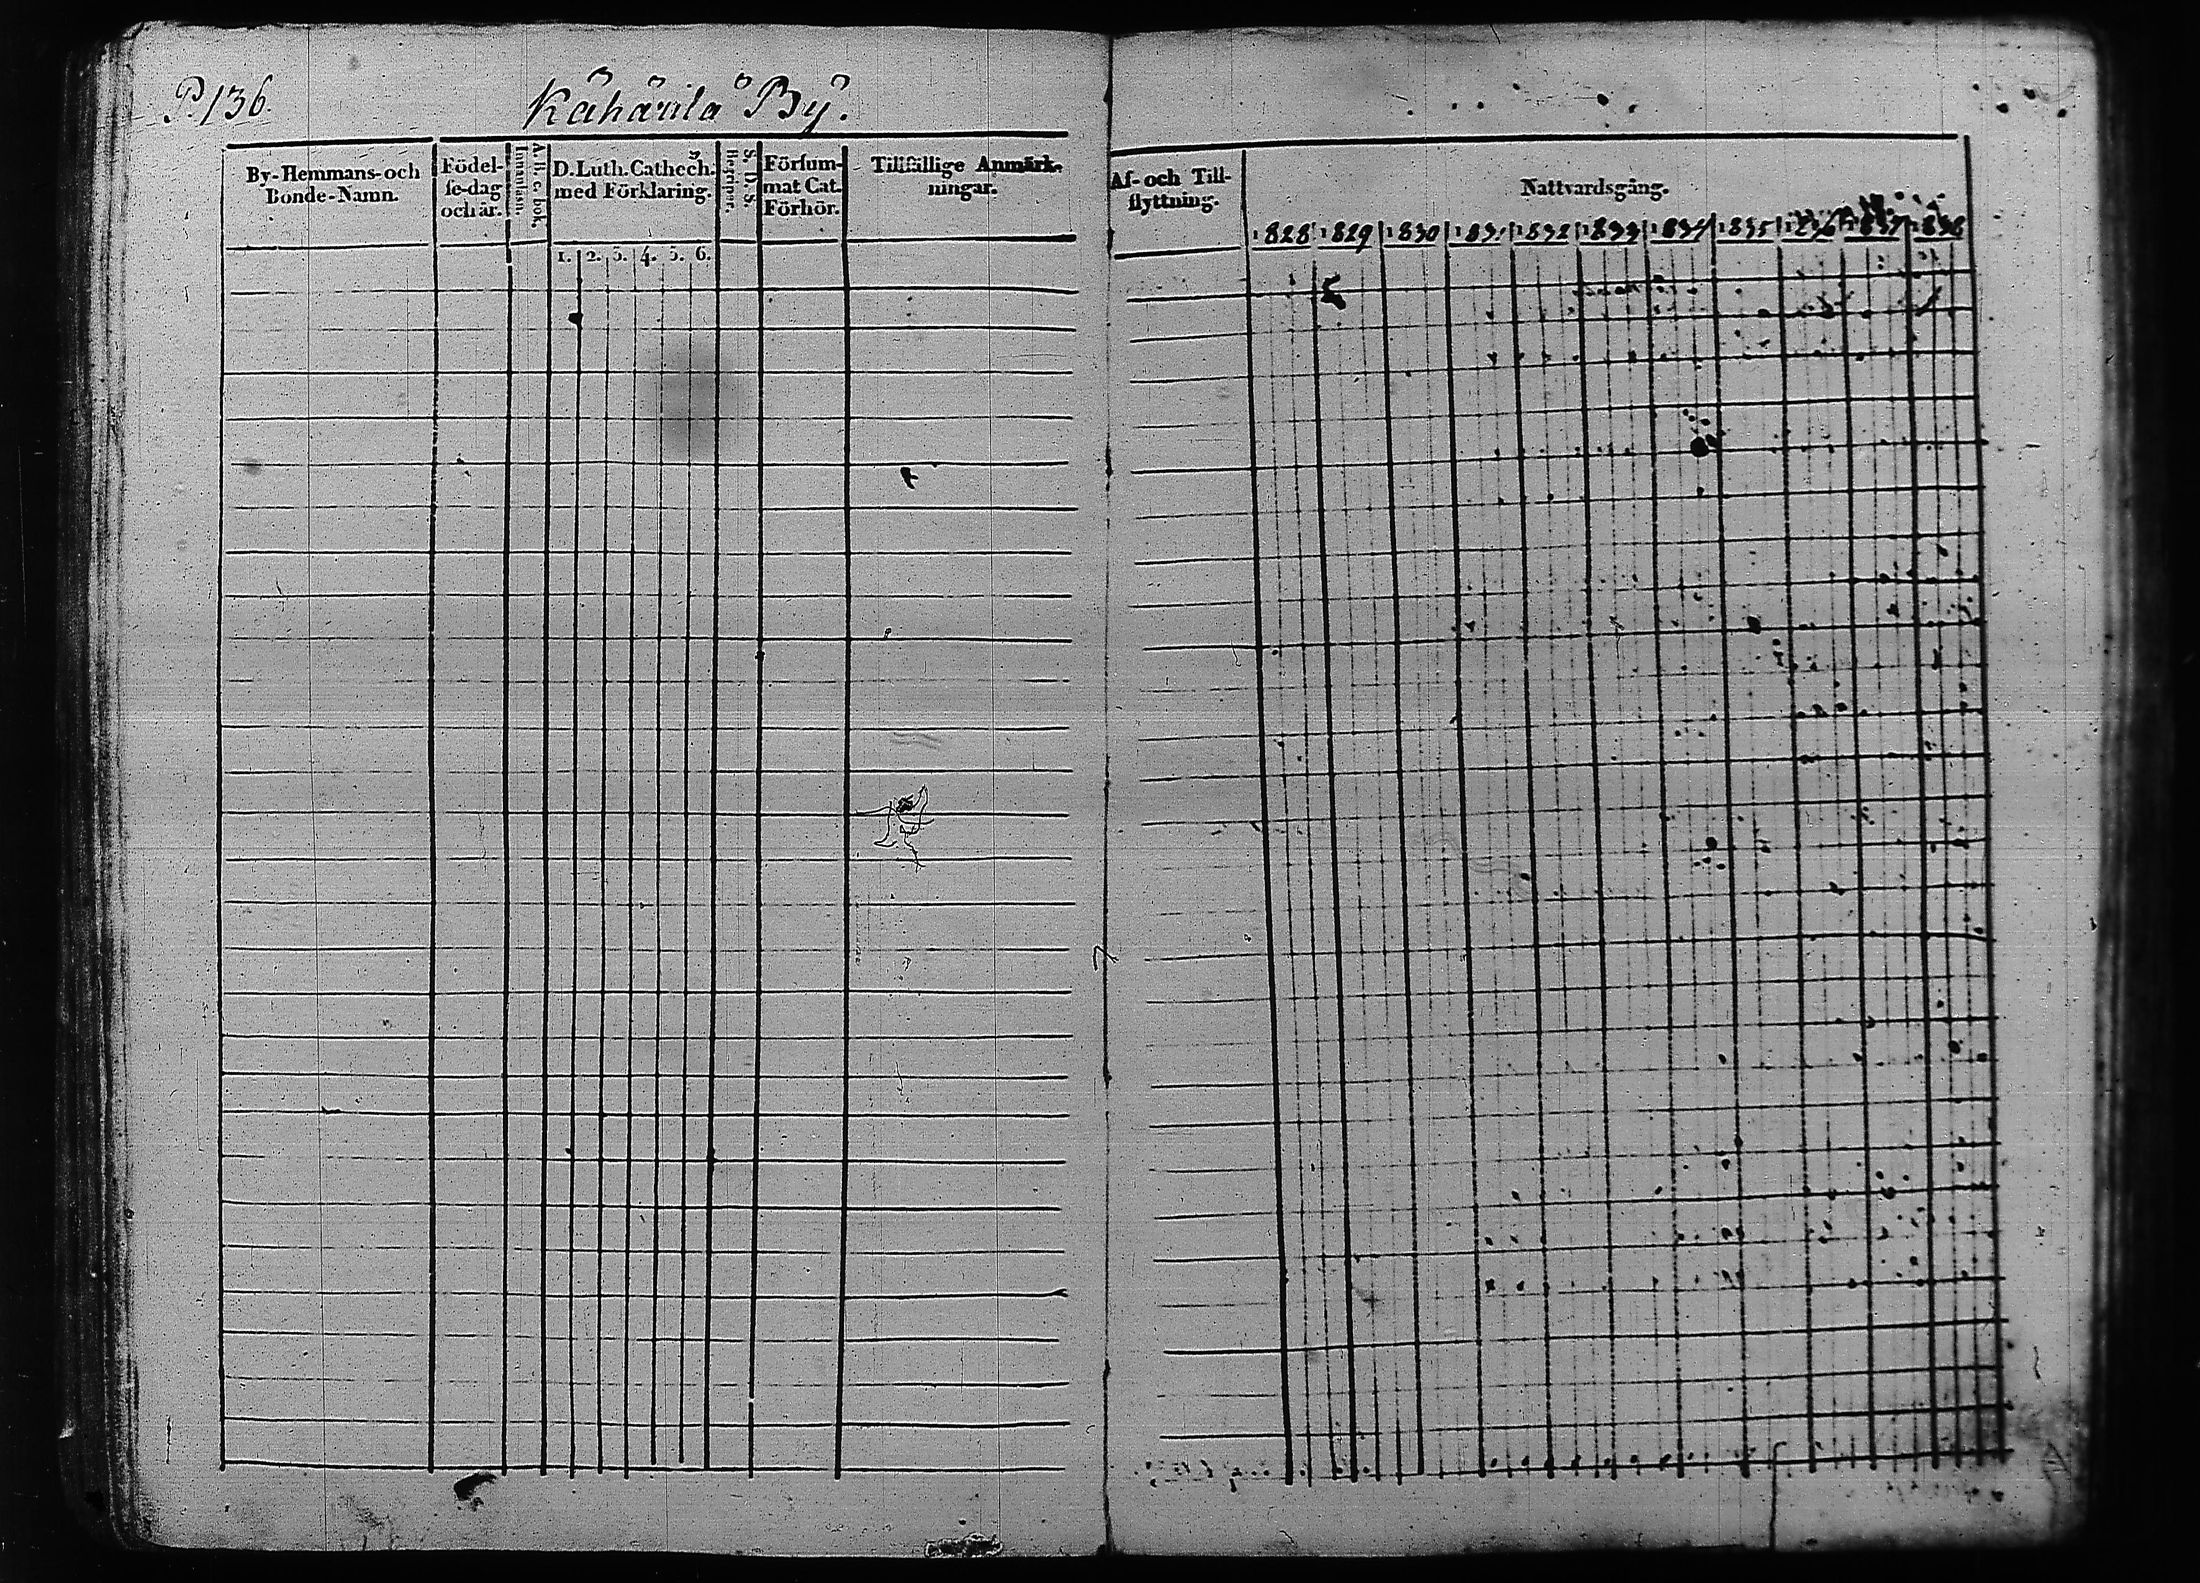 P. 136.
Kähärilä By.
By-Hemmans-och
Bonde-Namn.
Födel-
se-dag
och år.
A.b.c.bok.
Innanläsn.
D. Luth. Cathech.
med Förklaring.
1. 2. 3. 4. 5. 6.
S. D. S.
Begriper.
Försum-
mat Cat.
Förhör.
Tillfällige Anmärk-
ningar.
Af- och Till-
flyttning.
Nattvardsgång.
1828 1829 1830 1831 1832 1833 1834 1835 1836 1837 1838